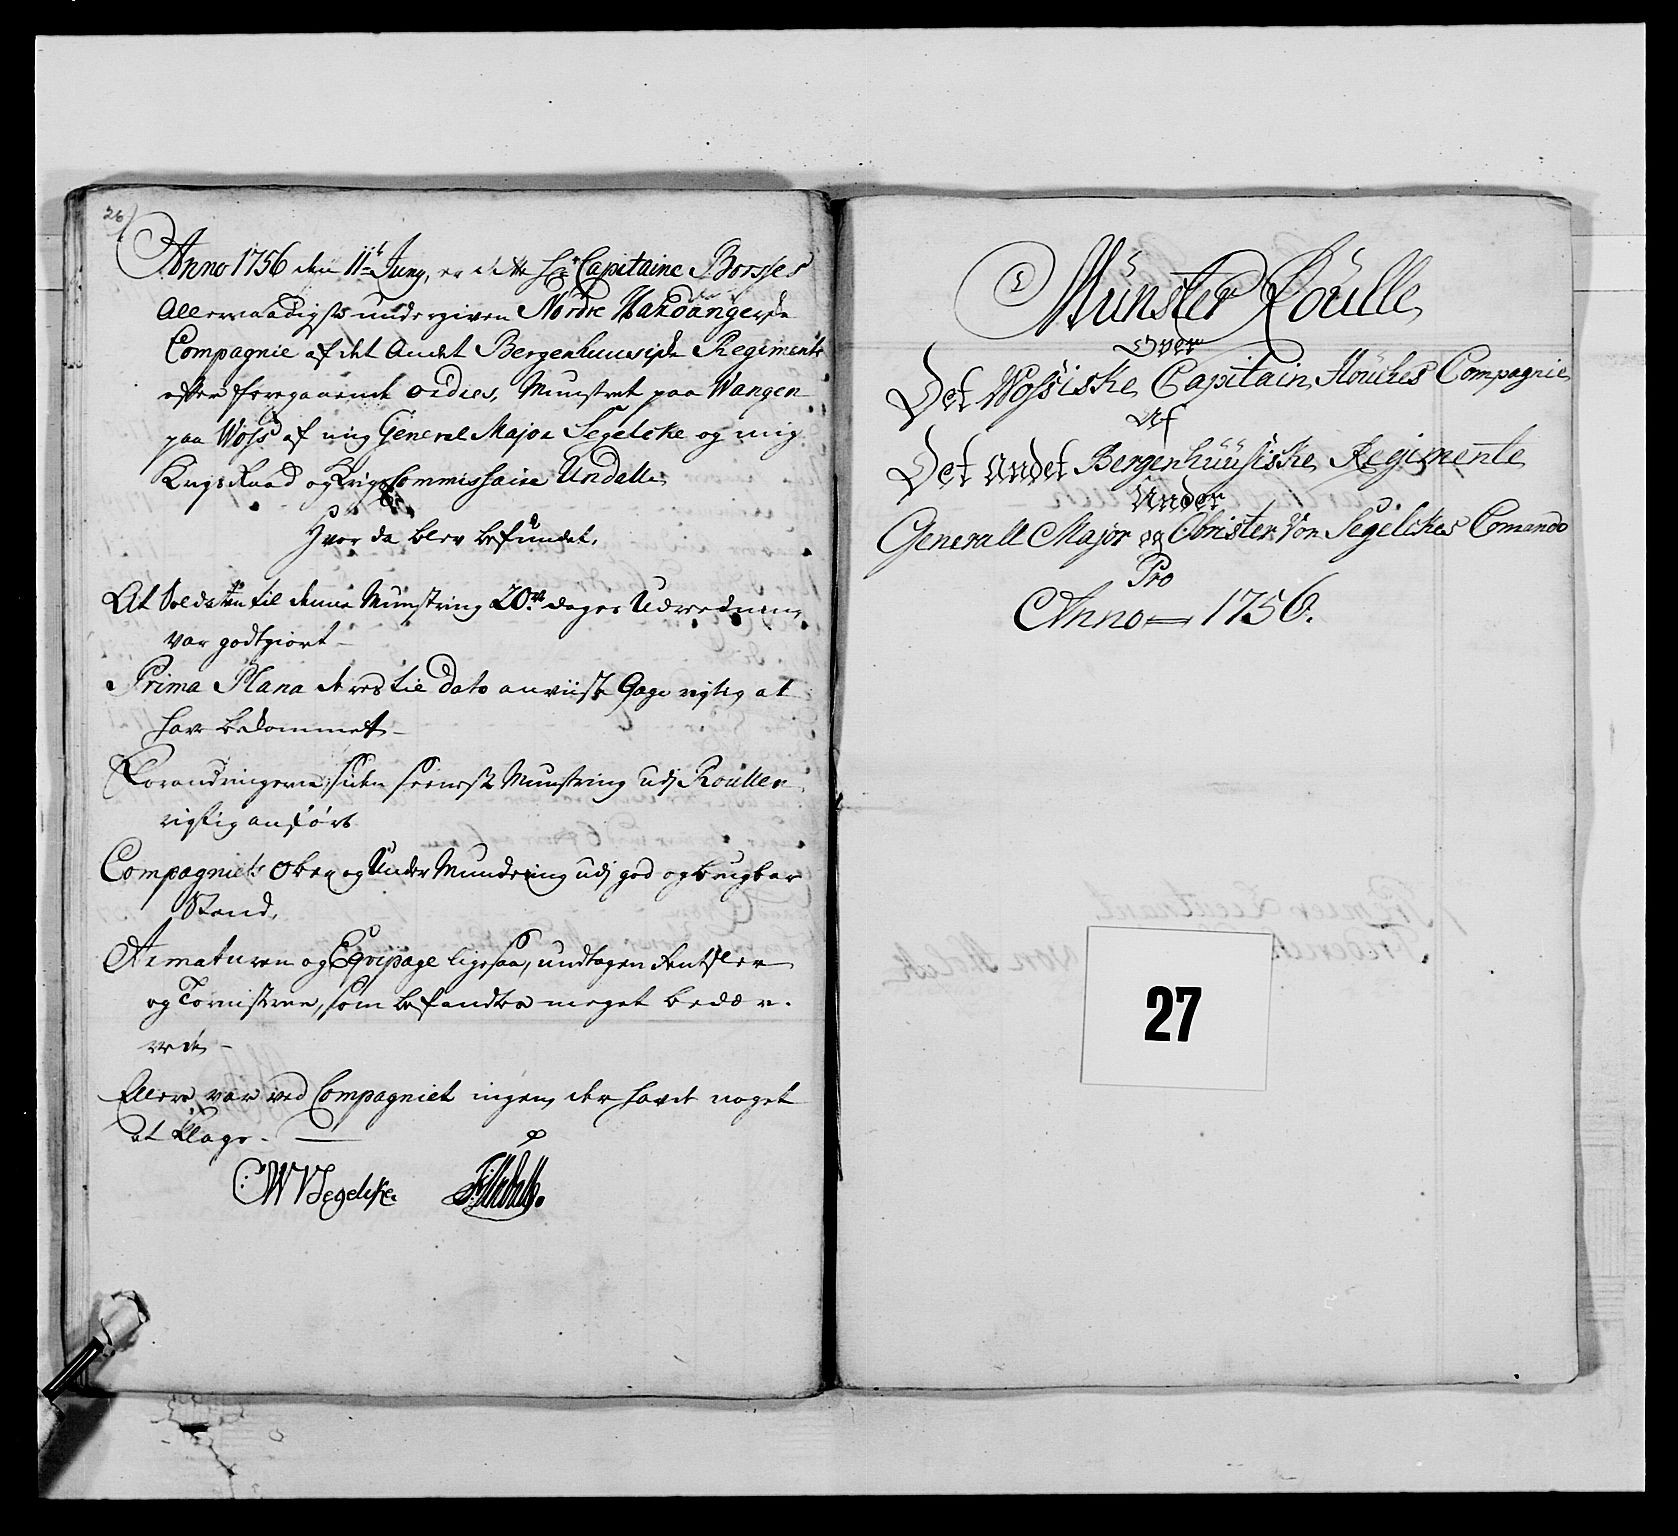 26/
Anno 1756 den 11t Juny, er dette Hr Capitaine Borsses
Allernaadigst undergivne Nordre Hardangerske
Compagnie af det Andet Bergenhuusiske Regimente
efter foregaaende ordres, Munstret paa Wangen
paa Woss af mig General Major Segelcke og mig
Krigs Raad og Krigs Commissaire Undall
Hvor da blev befundet,
At Soldaten til denne Munstring 20ve dages Udredning
var godtgiort
Prima Plana deres til dato anviiste Gage rigtig at
have bekommet
Forandringerne siden seeneste Munstring udj Roullen
rigtig anført
Compagniets Ober og Under Mundering udj god og brugbar
Stand,
Armaturen og Eqvipage ligesaa, undtagen
og Tornistrene, som befandtes meget bedær-
vede
Ellers var ved Compagniet ingen, der havde noget
at klage.
CWVSegelcke
Münster Roulle
Over
Det Wossiske Capitain Flouches Compagnie
Af
Det Andet Bergenhuusiske Regimente
Under
Generall Major og Obrister Von Segelckes Comando
Pro
Anno 1756.
27